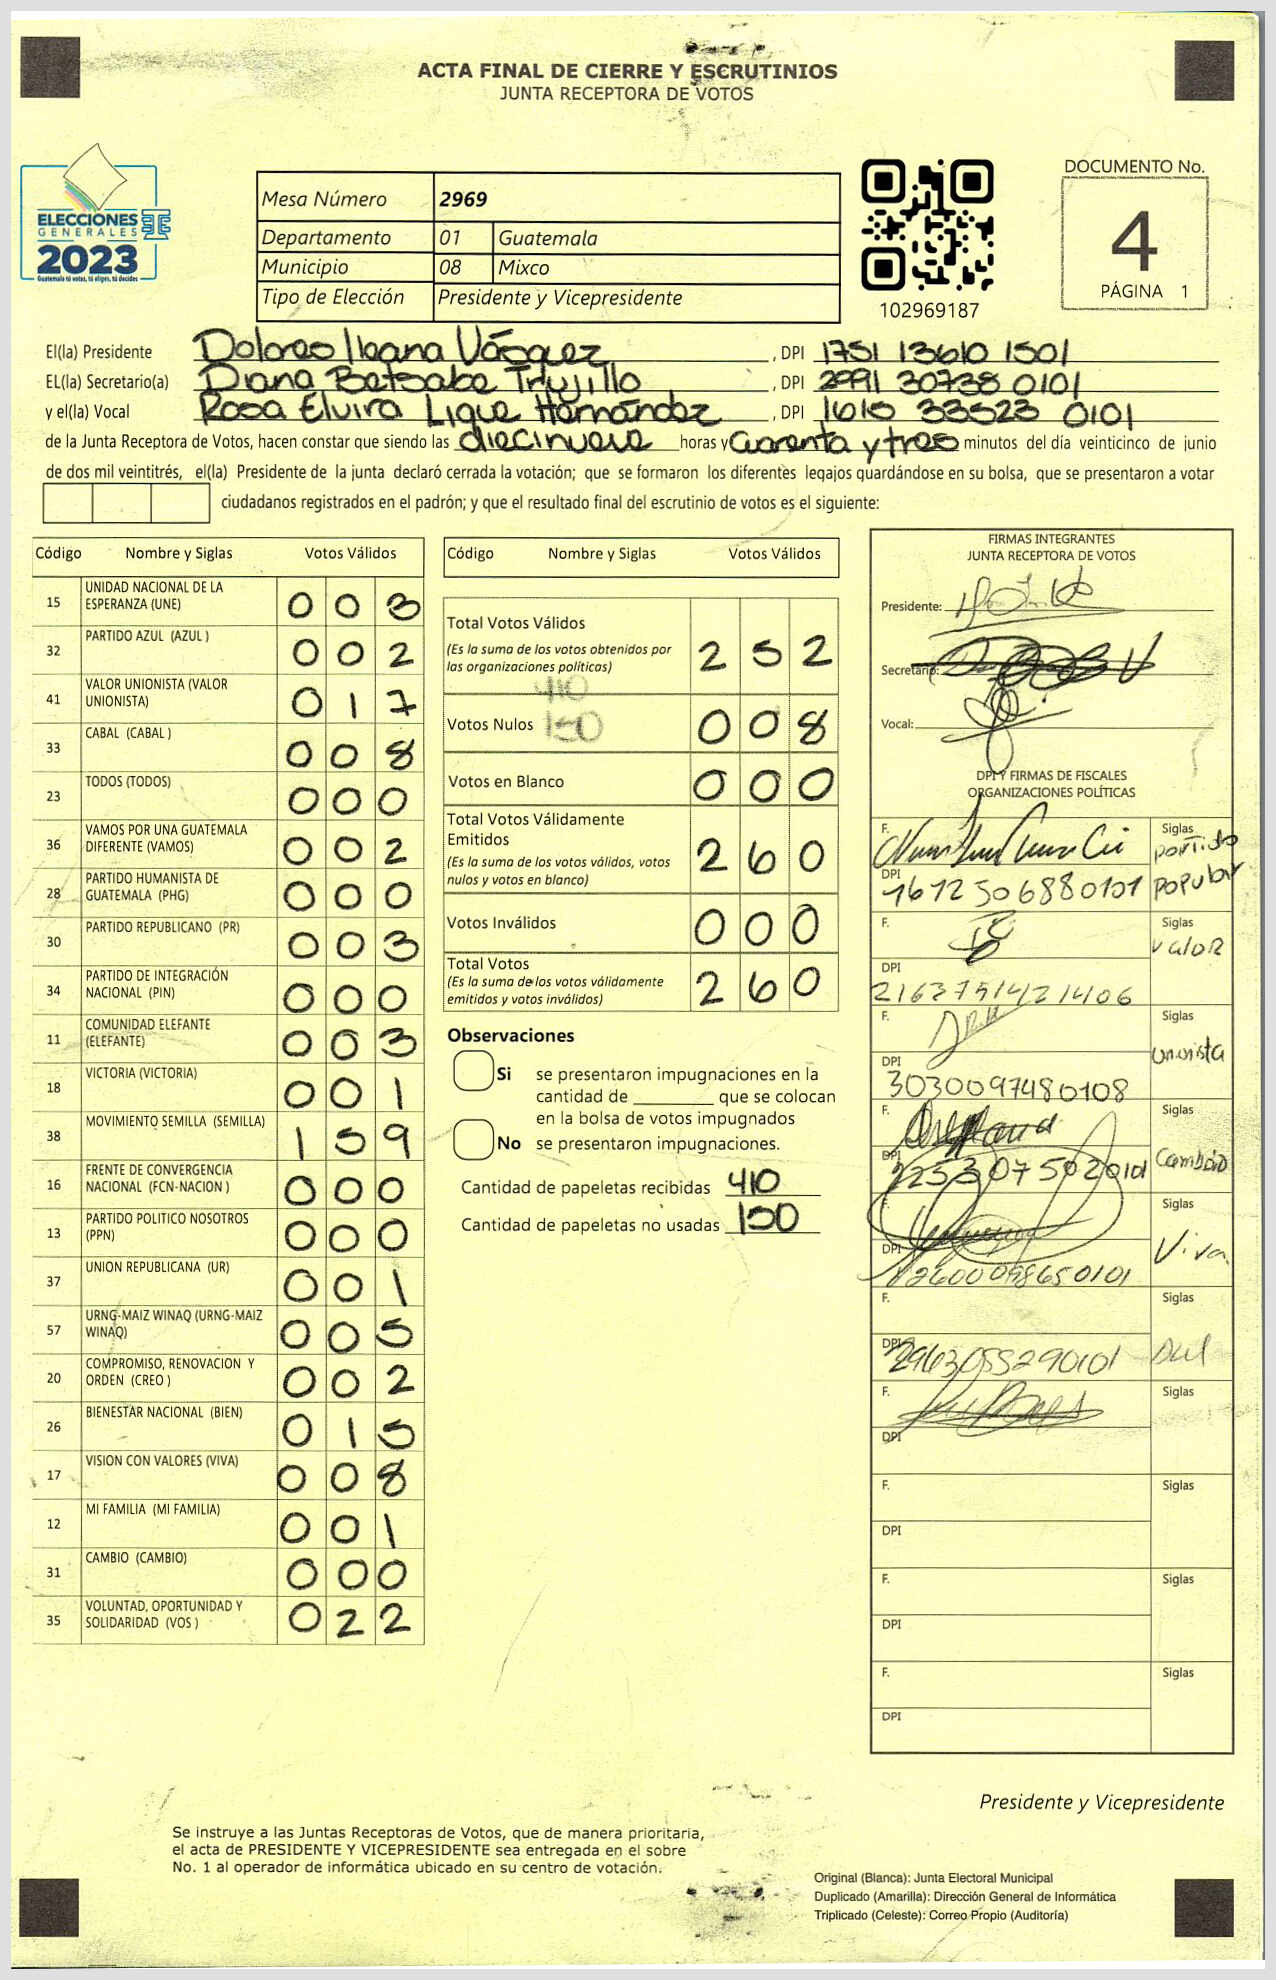 ACTA FINAL DE CIERRE Y ESCRUTINIOS
JUNTA RECEPTORA DE VOTOS
ELECCIONES
GENERALES
2023
Guatemala tú votas, tú eliges, tú decides
Mesa Número 2969
Departamento 01 Guatemala
Municipio 08 Mixco
Tipo de Elección Presidente y Vicepresidente
102969187
DOCUMENTO No.
4
PÁGINA 1
El(la) Presidente Dolores Ileana Vásquez, DPI 1751 13610 1501
EL(la) Secretario(a) Diana Betsabe Trujillo, DPI 2991 30738 0101
y el(la) Vocal Rosa Elvira Lique Hernández, DPI 1610 33523 0101
de la Junta Receptora de Votos, hacen constar que siendo las diecinueve horas y cuarenta y tres minutos del día veinticinco de junio
de dos mil veintitrés, el(la) Presidente de la junta declaró cerrada la votación; que se formaron los diferentes legajos guardándose en su bolsa, que se presentaron a votar
ciudadanos registrados en el padrón; y que el resultado final del escrutinio de votos es el siguiente:
Código Nombre y Siglas Votos Válidos
15 UNIDAD NACIONAL DE LA ESPERANZA (UNE) 0 0 3
32 PARTIDO AZUL (AZUL ) 0 0 2
41 VALOR UNIONISTA (VALOR UNIONISTA) 0 1 7
33 CABAL (CABAL ) 0 0 8
23 TODOS (TODOS) 0 0 0
36 VAMOS POR UNA GUATEMALA DIFERENTE (VAMOS) 0 0 2
28 PARTIDO HUMANISTA DE GUATEMALA (PHG) 0 0 0
30 PARTIDO REPUBLICANO (PR) 0 0 3
34 PARTIDO DE INTEGRACIÓN NACIONAL (PIN) 0 0 0
11 COMUNIDAD ELEFANTE (ELEFANTE) 0 0 3
18 VICTORIA (VICTORIA) 0 0 1
38 MOVIMIENTO SEMILLA (SEMILLA) 1 5 9
16 FRENTE DE CONVERGENCIA NACIONAL (FCN-NACION ) 0 0 0
13 PARTIDO POLITICO NOSOTROS (PPN) 0 0 0
37 UNION REPUBLICANA (UR) 0 0 1
57 URNG-MAIZ WINAQ (URNG-MAIZ WINAQ) 0 0 5
20 COMPROMISO, RENOVACION Y ORDEN (CREO ) 0 0 2
26 BIENESTAR NACIONAL (BIEN) 0 1 5
17 VISION CON VALORES (VIVA) 0 0 8
12 MI FAMILIA (MI FAMILIA) 0 0 1
31 CAMBIO (CAMBIO) 0 0 0
35 VOLUNTAD, OPORTUNIDAD Y SOLIDARIDAD (VOS ) 0 2 2
Código Nombre y Siglas Votos Válidos
Total Votos Válidos 2 5 2
(Es la suma de los votos obtenidos por
las organizaciones políticas)
410
Votos Nulos 150 0 0 8
Votos en Blanco 0 0 0
Total Votos Válidamente
Emitidos 2 6 0
(Es la suma de los votos válidos, votos
nulos y votos en blanco)
Votos Inválidos 0 0 0
Total Votos 2 6 0
(Es la suma de los votos válidamente
emitidos y votos inválidos)
Observaciones
Si se presentaron impugnaciones en la
cantidad de ________ que se colocan
en la bolsa de votos impugnados
No se presentaron impugnaciones.
Cantidad de papeletas recibidas 410
Cantidad de papeletas no usadas 150
FIRMAS INTEGRANTES
JUNTA RECEPTORA DE VOTOS
Presidente:
Secretario:
Vocal:
DPI Y FIRMAS DE FISCALES
ORGANIZACIONES POLÍTICAS
F. Siglas partido
DPI 1612506880101 popular
F. Siglas valor
DPI 2163795421406
F. Siglas unionista
DPI 3030097480108
F. Siglas Cambio
DPI 2253075020101
F. Siglas Viva
DPI 2600098650101
F. Siglas
DPI 2963055290101
F. Siglas
DPI
F. Siglas
DPI
F. Siglas
DPI
F. Siglas
DPI
Presidente y Vicepresidente
Se instruye a las Juntas Receptoras de Votos, que de manera prioritaria,
el acta de PRESIDENTE Y VICEPRESIDENTE sea entregada en el sobre
No. 1 al operador de informática ubicado en su centro de votación.
Original (Blanca): Junta Electoral Municipal
Duplicado (Amarilla): Dirección General de Informática
Triplicado (Celeste): Correo Propio (Auditoría)